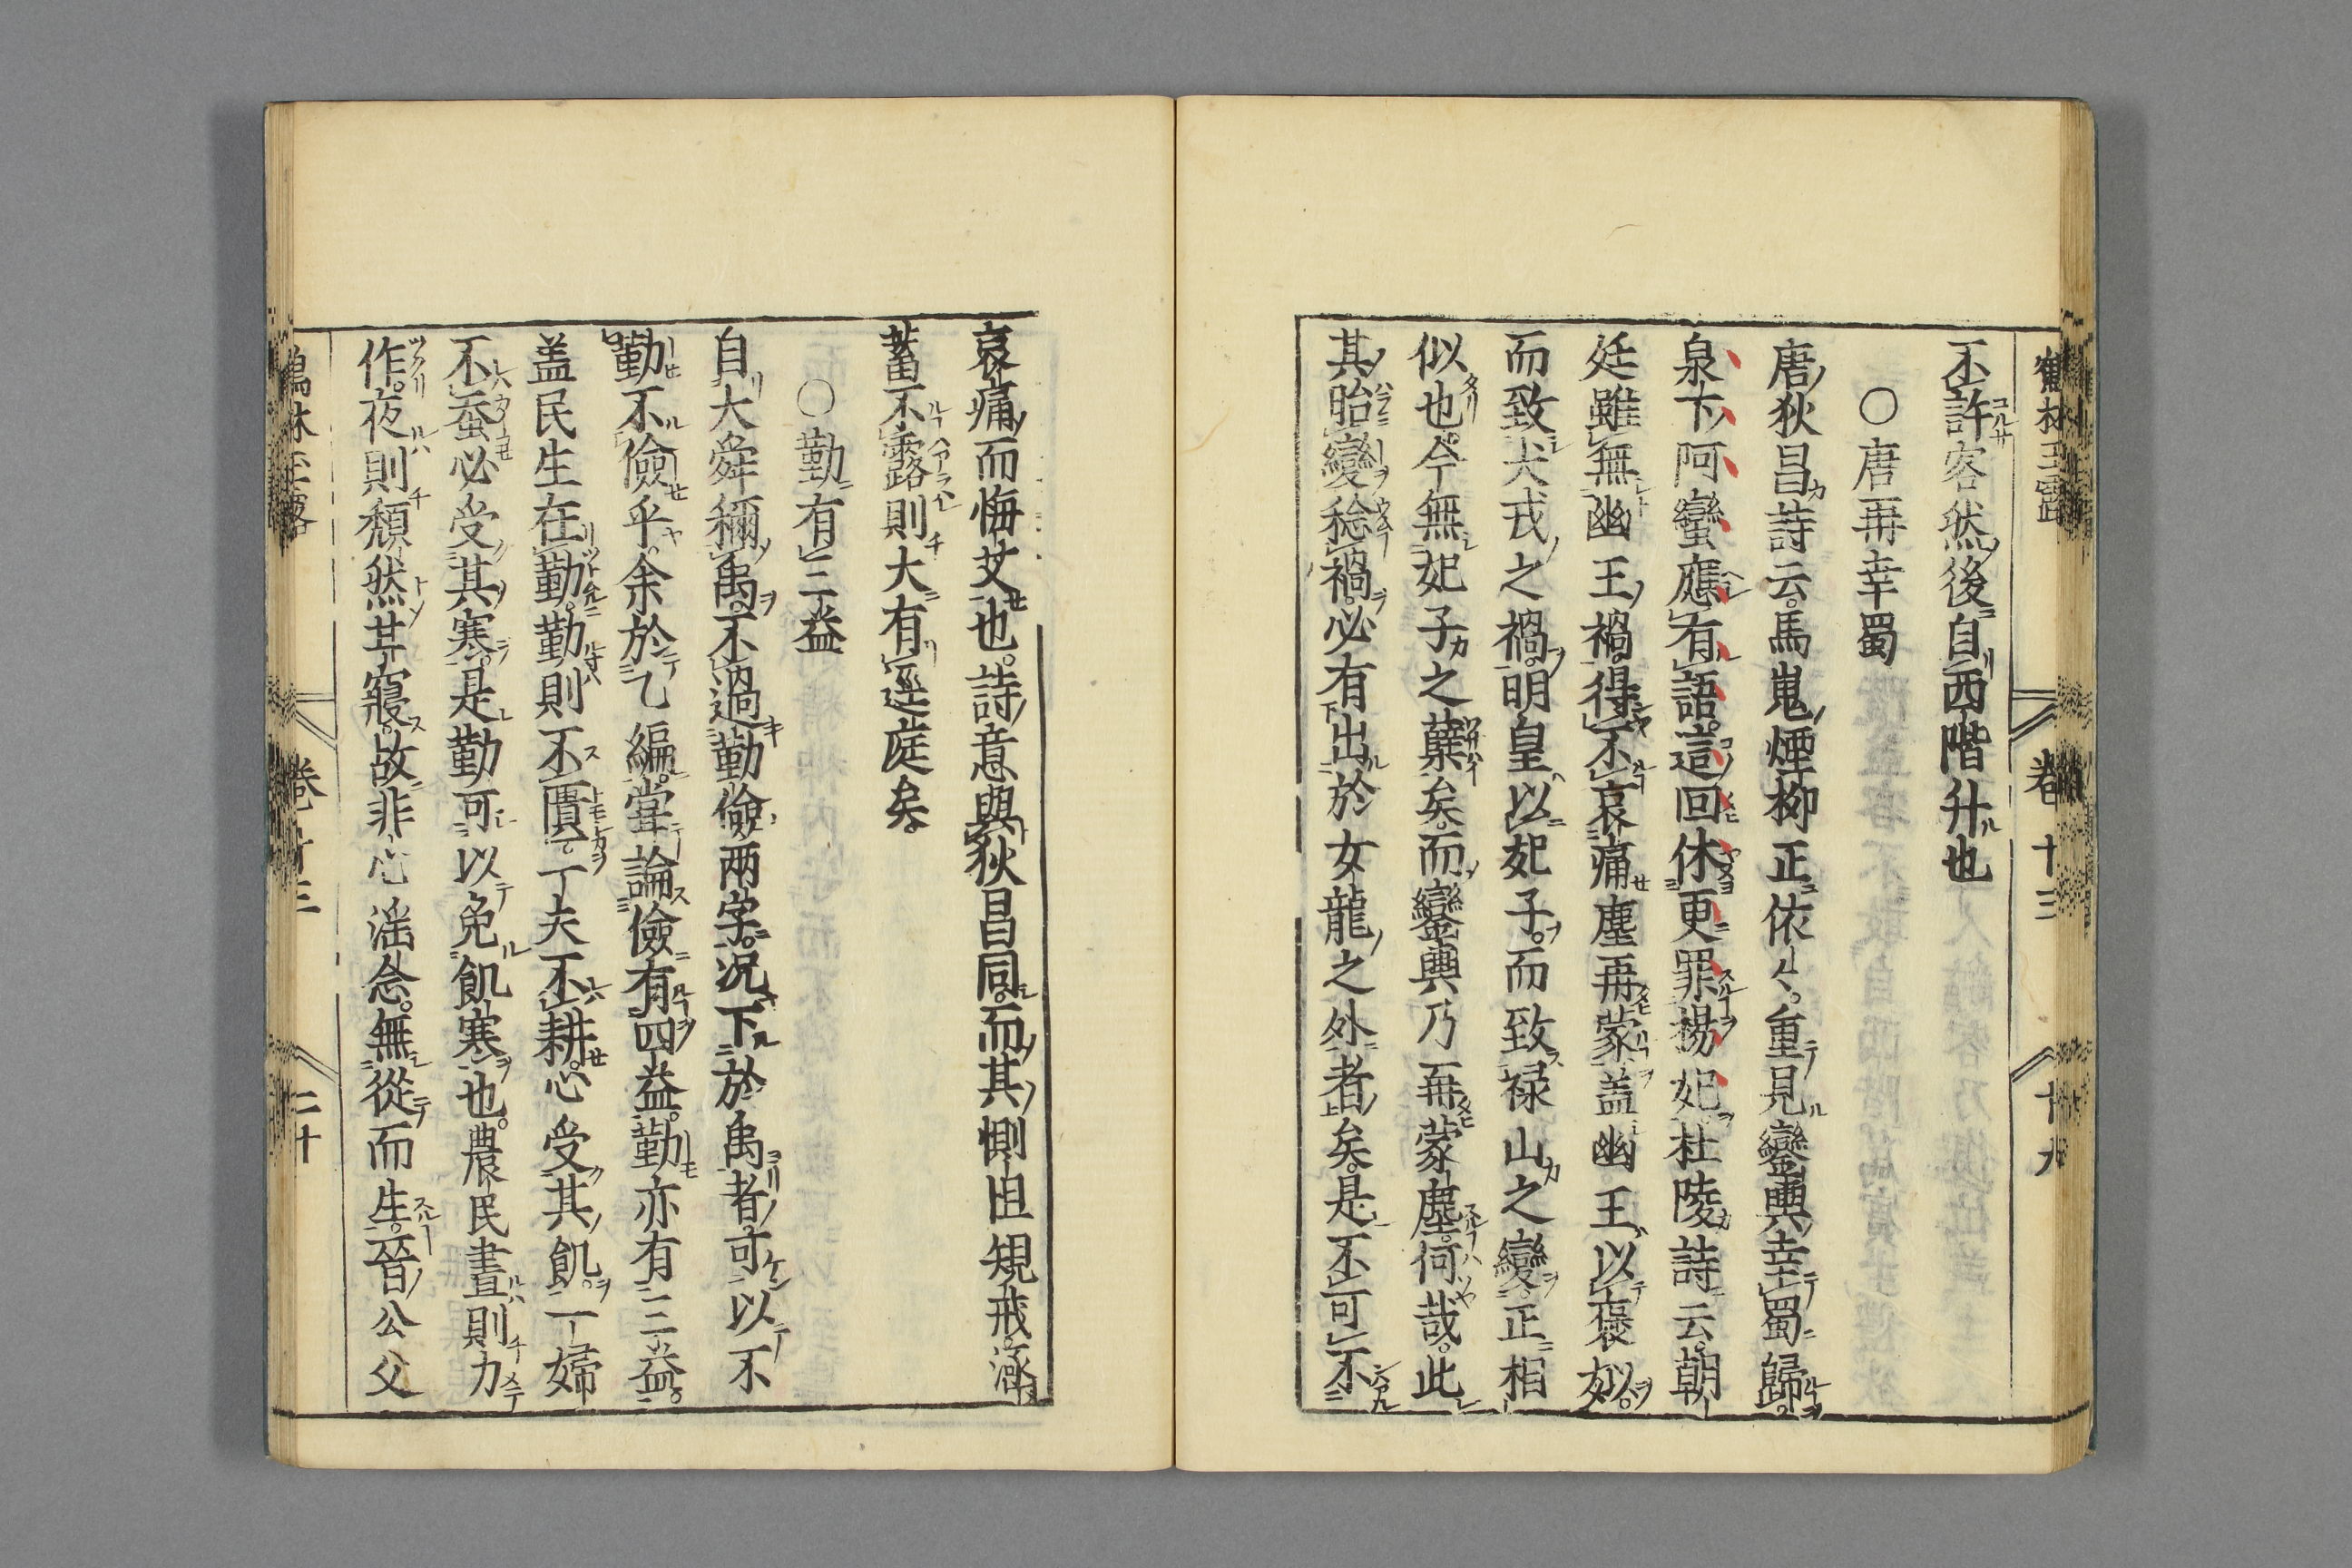 鶴林玉露　卷十三　十九
不許客然後自西階升也
○唐再幸蜀
唐狄昌詩云馬嵬煙柳正依〻重見鑾輿幸蜀歸
泉下阿蠻應有語這回休更罪楊妃杜陵詩云朝
廷雖無幽王禍得不哀痛塵再蒙盖幽王以褒姒
而致犬戎之禍明皇以妃子而致禄山之變正相
似也今無妃子之蘖矣而鑾輿乃再蒙塵何哉此
其胎變稔禍必有出於女龍之外者矣是不可不
哀痛而悔艾也詩意與狄昌同而其惻怛規戒㴱
蓄不露則大有逕庭矣
○勤有三益
自大舜稱禹不過勤儉两字况下於禹者可以不
勤不儉乎余於乙編甞論儉有四益勤亦有三益
盖民生在勤勤則不匱一夫不耕必受其飢一婦
不蚕必受其寒是勤可以免飢寒也農民晝則力
作夜則頹然甘寢故非心滛念無從而生晉公父
鶴林玉露　卷十三　二十